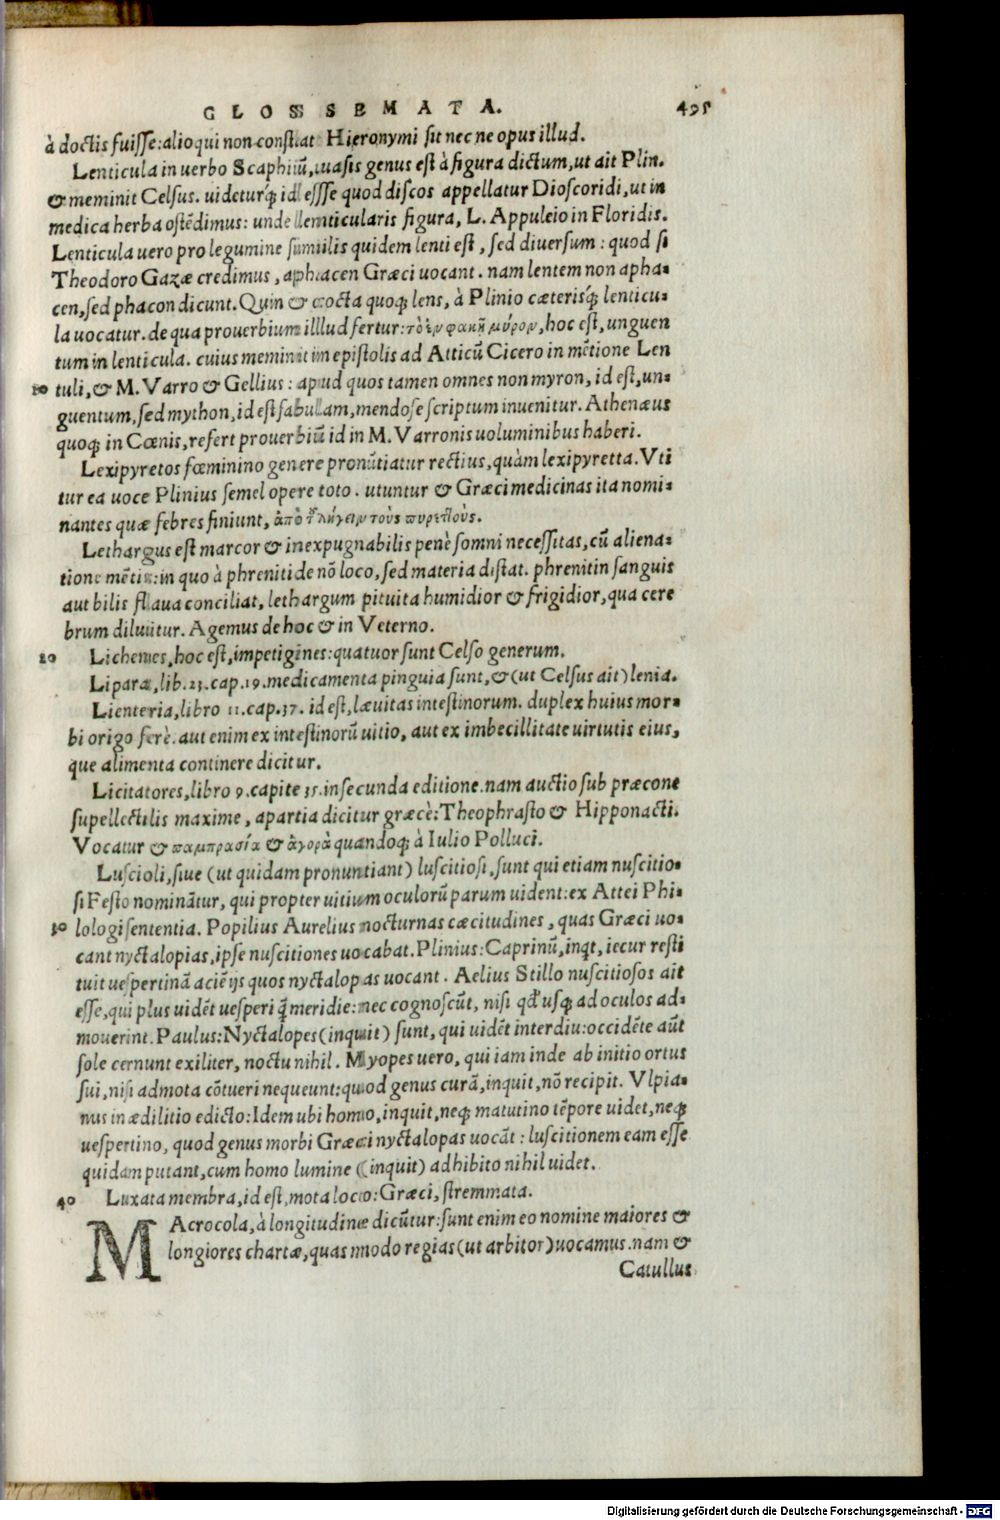 GLOSSEMATA. 495
à doctis fuisse: alioqui non constat Hieronymi sit nec ne opus illud.
Lenticula in uerbo Scaphiũ, uasis genus est à figura dictum, ut ait Plin.
& meminit Celsus. uideturq́; id esse quod discos appellatur Dioscoridi, ut in
medica herba ostẽdimus: unde lenticularis figura, L. Appuleio in Floridis.
Lenticula uero pro legumine similis quidem lenti est, sed diuersum: quod si
Theodoro Gazæ credimus, aphacen Græci uocant. nam lentem non apha-
cen, sed phacon dicunt. Quin & cocta quoq; lens, à Plinio cæterisq́; lenticu-
la uocatur. de qua prouerbium illud fertur: τὸ ἐν φακῇ μύρον, hoc est, unguen
tum in lenticula. cuius meminit in epistolis ad Atticũ Cicero in mẽtione Len
10 tuli, & M. Varro & Gellius: apud quos tamen omnes non myron, id est, un-
guentum, sed mython, id est fabulam, mendose scriptum inuenitur. Athenæus
quoq; in Cœnis, refert prouerbiũ id in M. Varronis uoluminibus haberi.
Lexipyretos fœminino genere pronũtiatur rectius, quàm lexipyretta. Vti
tur ea uoce Plinius semel opere toto. utuntur & Græci medicinas ita nomi-
nantes quæ febres finiunt, ἀπὸ τ͂ λήγειν τοὺς πυρετοὺς.
Lethargus est marcor & inexpugnabilis penè somni necessitas, cũ aliena-
tione mẽtis: in quo à phrenitide nõ loco, sed materia distat. phrenitin sanguis
aut bilis flaua conciliat, lethargum pituita humidior & frigidior, qua cere
brum diluitur. Agemus de hoc & in Veterno.
20 Lichenes, hoc est, impetigines: quatuor sunt Celso generum.
Liparæ, lib. 23. cap. 19. medicamenta pinguia sunt, & (ut Celsus ait) lenia.
Lienteria, libro 11. cap. 37. id est, læuitas intestinorum. duplex huius mor-
bi origo ferè. aut enim ex intestinorũ uitio, aut ex imbecillitate uirtutis eius,
que alimenta continere dicitur.
Licitatores, libro 9. capite 35. in secunda editione. nam auctio sub præcone
supellectilis maxime, apartia dicitur græcè: Theophrasto & Hipponacti.
Vocatur & παμπρασία & ἀγορὰ quandoq; à Iulio Polluci.
Luscioli, siue (ut quidam pronuntiant) luscitiosi, sunt qui etiam nuscitio-
si Festo nominãtur, qui propter uitium oculorũ parum uident: ex Attei Phi-
30 lologi sententia. Popilius Aurelius nocturnas cæcitudines, quas Græci uo-
cant nyctalopias, ipse nuscitiones uocabat. Plinius: Caprinũ, inqt, iecur resti
tuit uespertinã aciẽ ijs quos nyctalopas uocant. Aelius Stillo nuscitiosos ait
esse, qui plus uidẽt uesperi q̃ meridie: nec cognoscũt, nisi qđ usq; ad oculos ad-
mouerint. Paulus: Nyctalopes (inquit) sunt, qui uidẽt interdiu: occidẽte aũt
sole cernunt exiliter, noctu nihil. Myopes uero, qui iam inde ab initio ortus
sui, nisi admota cõtueri nequeunt: quod genus curã, inquit, nõ recipit. Vlpia-
nus in ædilitio edicto: Idem ubi homo, inquit, neq; matutino tẽpore uidet, neq;
uespertino, quod genus morbi Græci nyctalopas uocãt: luscitionem eam esse
quidam putant, cum homo lumine (inquit) adhibito nihil uidet.
40 Luxata membra, id est, mota loco: Græci, stremmata.
MAcrocola, à longitudine dicũtur: sunt enim eo nomine maiores &
longiores chartæ, quas modo regias (ut arbitor) uocamus. nam &
Catullus
Digitalisierung gefördert durch die Deutsche Forschungsgemeinschaft - DFG